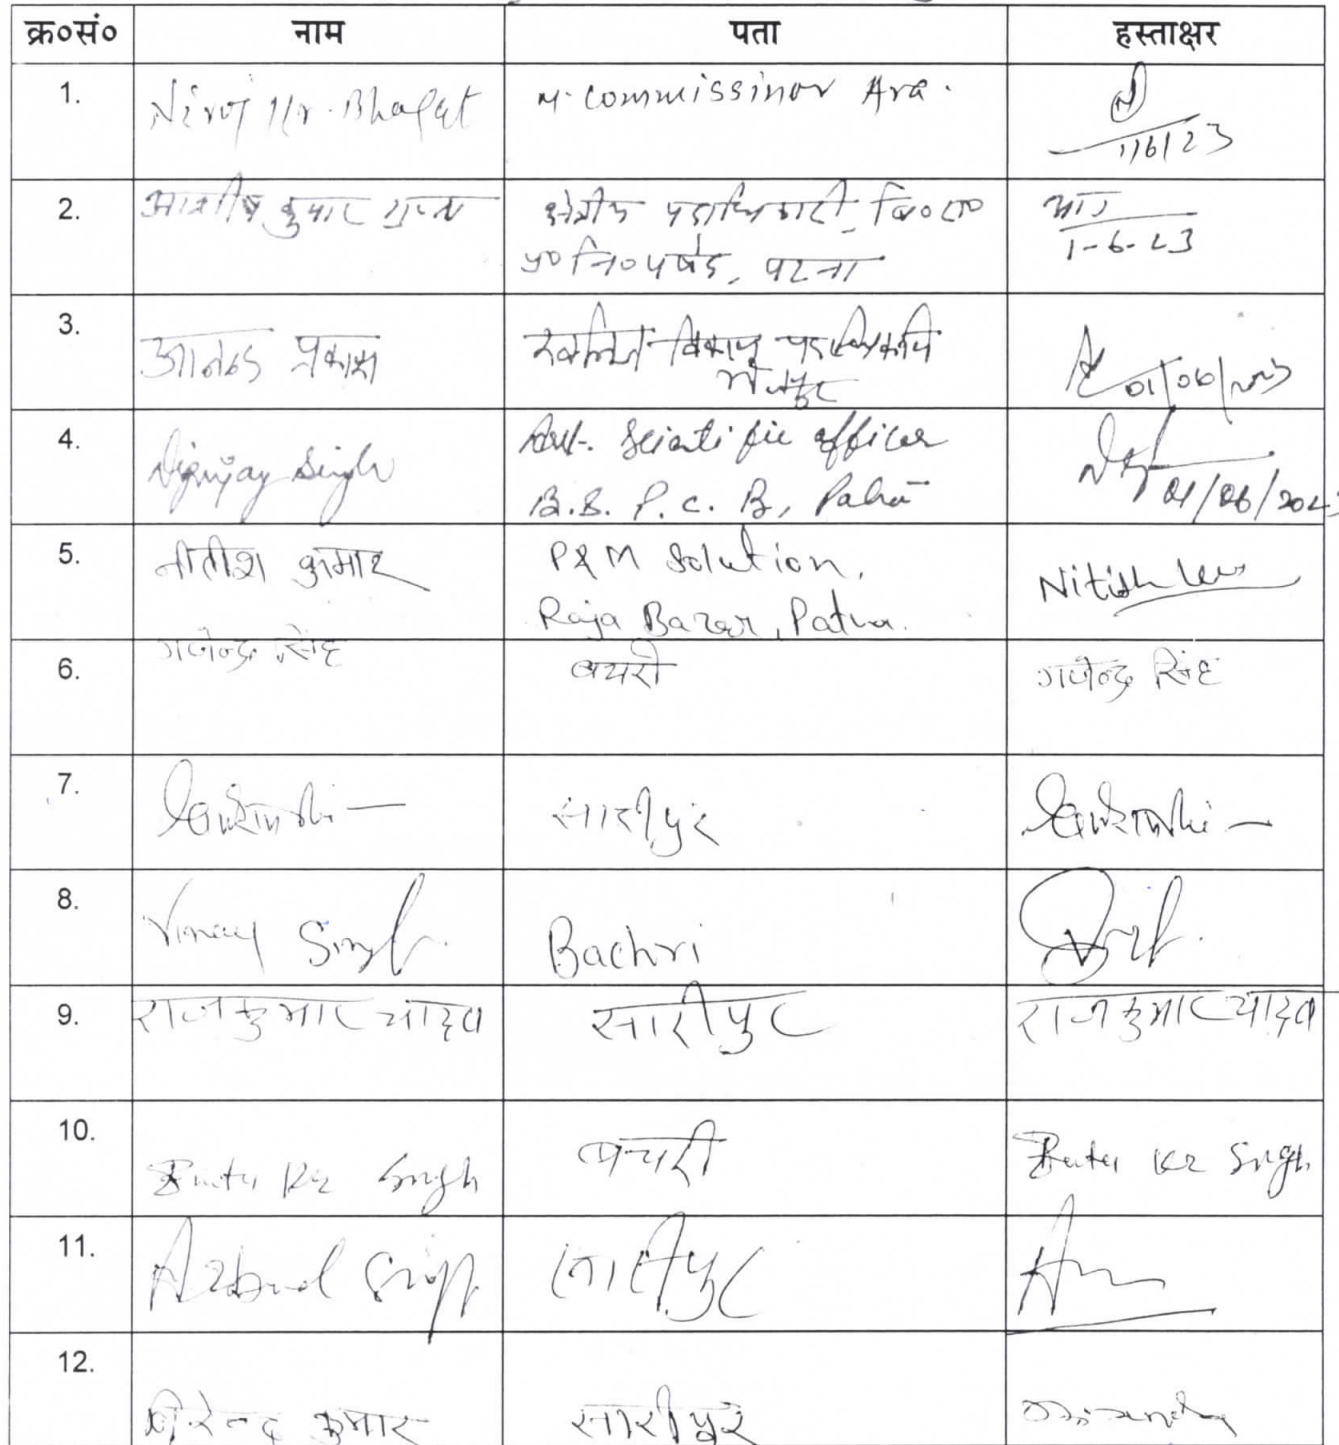 क्र०सं० नाम पता हस्ताक्षर
1. Niroj Kr. Bhagat M. Commissinor Ara.
1/6/23
2. आशीष कुमार गुप्ता क्षेत्रीय पदाधिकारी, बि०रा०
प्र० नि० पर्षद, पटना
1-6-23
3. आनन्द प्रकाश खनिज विकास पदाधिकारी
भोजपुर
01/06/2023
4. Digvijay Singh Asst. Scientific officer
B.S. P. C. B, Patna
01/06/2023
5. नीतीश कुमार P&M Solution,
Raja Bazar, Patna.
Nitish
6. गजेन्द्र सिंह बचरी गजेन्द्र सिंह
7. सारीपुर
8. Vinay Singh Bachri
9. राजकुमार यादव सारीपुर राजकुमार यादव
10. Kr Singh बचरी Kr Singh
11. Singh सारीपुर
12. बीरेन्द्र कुमार सारीपुर